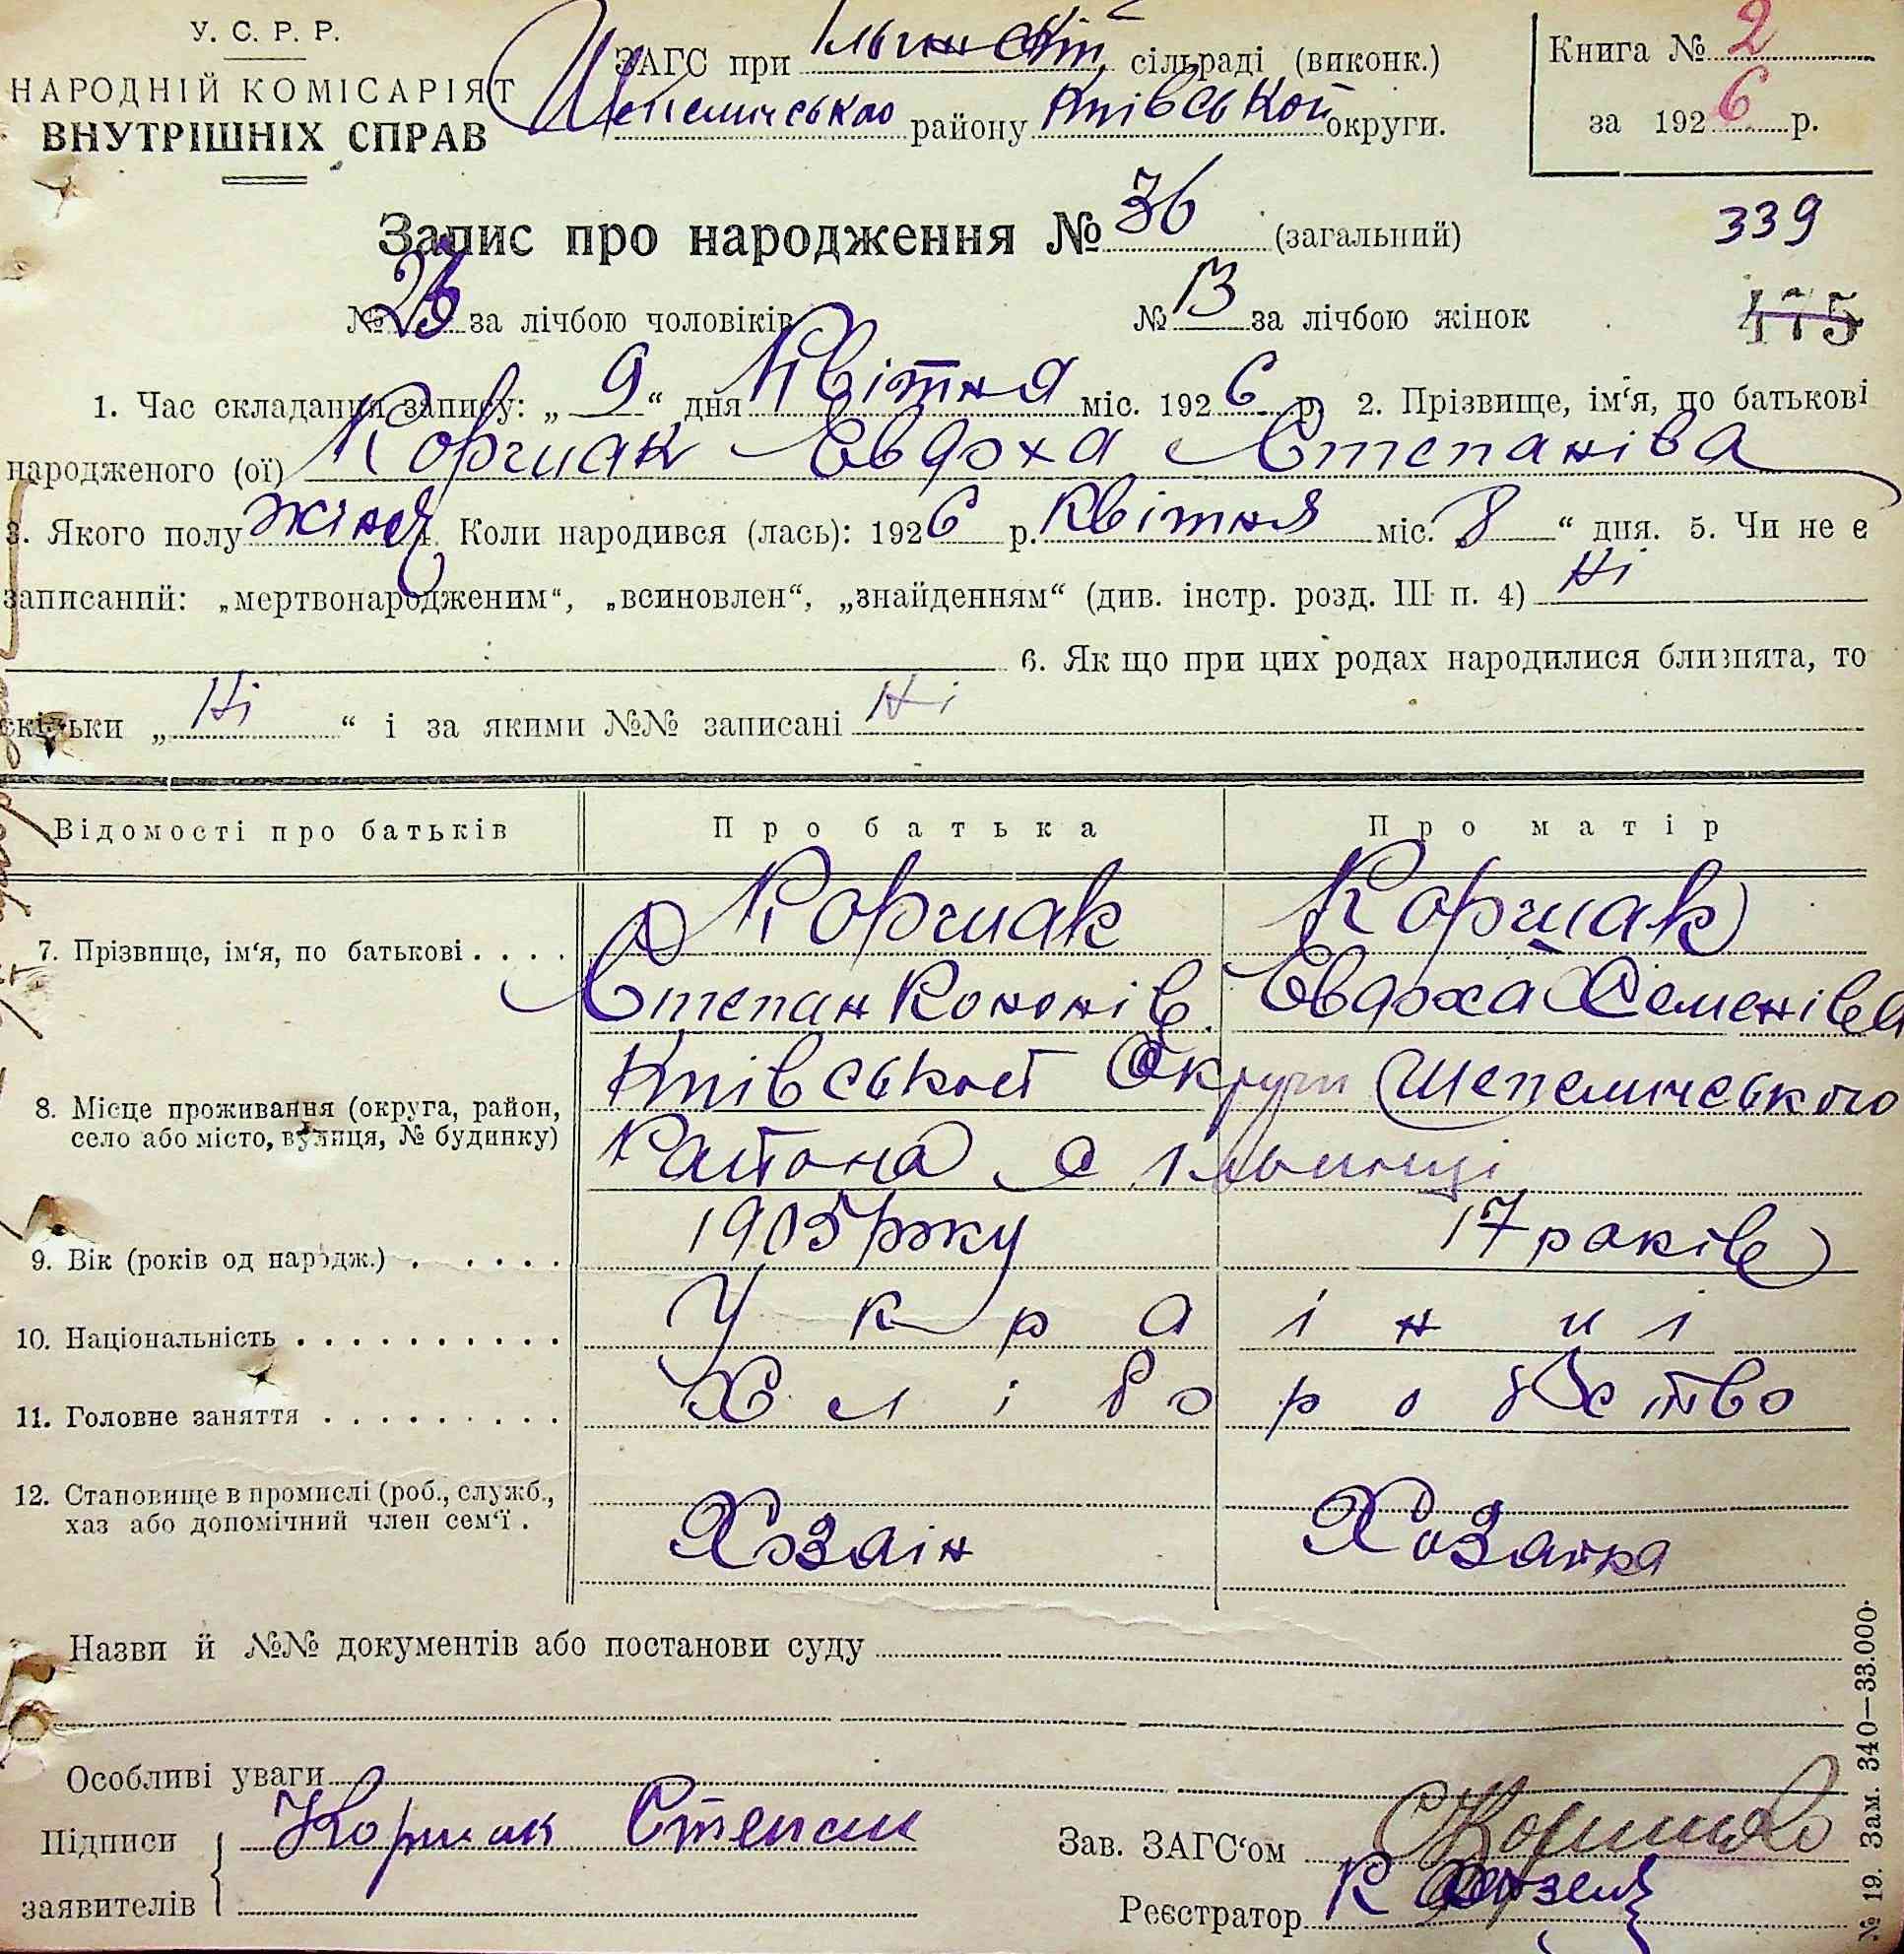 У. С. Р. Р.
НАРОДНІЙ КОМІСАРІЯТ
ВНУТРІШНІХ СПРАВ
ЗАГС при Ільинскій сільраді (виконк.)
Шепеличського району Київськой округи.
Книга № 2
за 1926 р.
Запис про народження № 36 (загальний)
339
№ 23 за лічбою чоловіків № 13 за лічбою жінок
475
1. Час складання запису: „ 9 “ дня Квітня міс. 1926 р. 2. Прізвище, ім‘я, по батькові
народженого (ої) Корчак Евдоха Степаніва
3. Якого полу жіноч 4. Коли народився (лась): 1926 р. Квітня міс. „ 8 “ дня. 5. Чи не є
записаний: „мертвонародженим“, „всиновлен“, „знайденням“ (див. інстр. розд. III п. 4) Ні
6. Як що при цих родах народилися близнята, то
скільки „ Ні “ і за якими №№ записані Ні
Відомості про батьків Про батька Про матір
7. Прізвище, ім‘я, по батькові . . . . Корчак Корчак
Степан Кононів Евдоха Семеніва
8. Місце проживання (округа, район, село або місто, вулиця, № будинку) Київськой Округи Шепеличського
Района с Ільинці
9. Вік (років од народж.) . . . . . . 1905 року 17 років
10. Національність . . . . . . . . . . Українці
11. Головне заняття . . . . . . . . . Хліборобство
12. Становище в промислі (роб., служб.,
хаз або допомічний член сем‘ї . Хозаін Хозайка
Назви й №№ документів або постанови суду
Особливі уваги
Підписи заявителів Корчак Степан
Зав. ЗАГС‘ом
Реєстратор К
№ 19. Зам. 340—33.000.